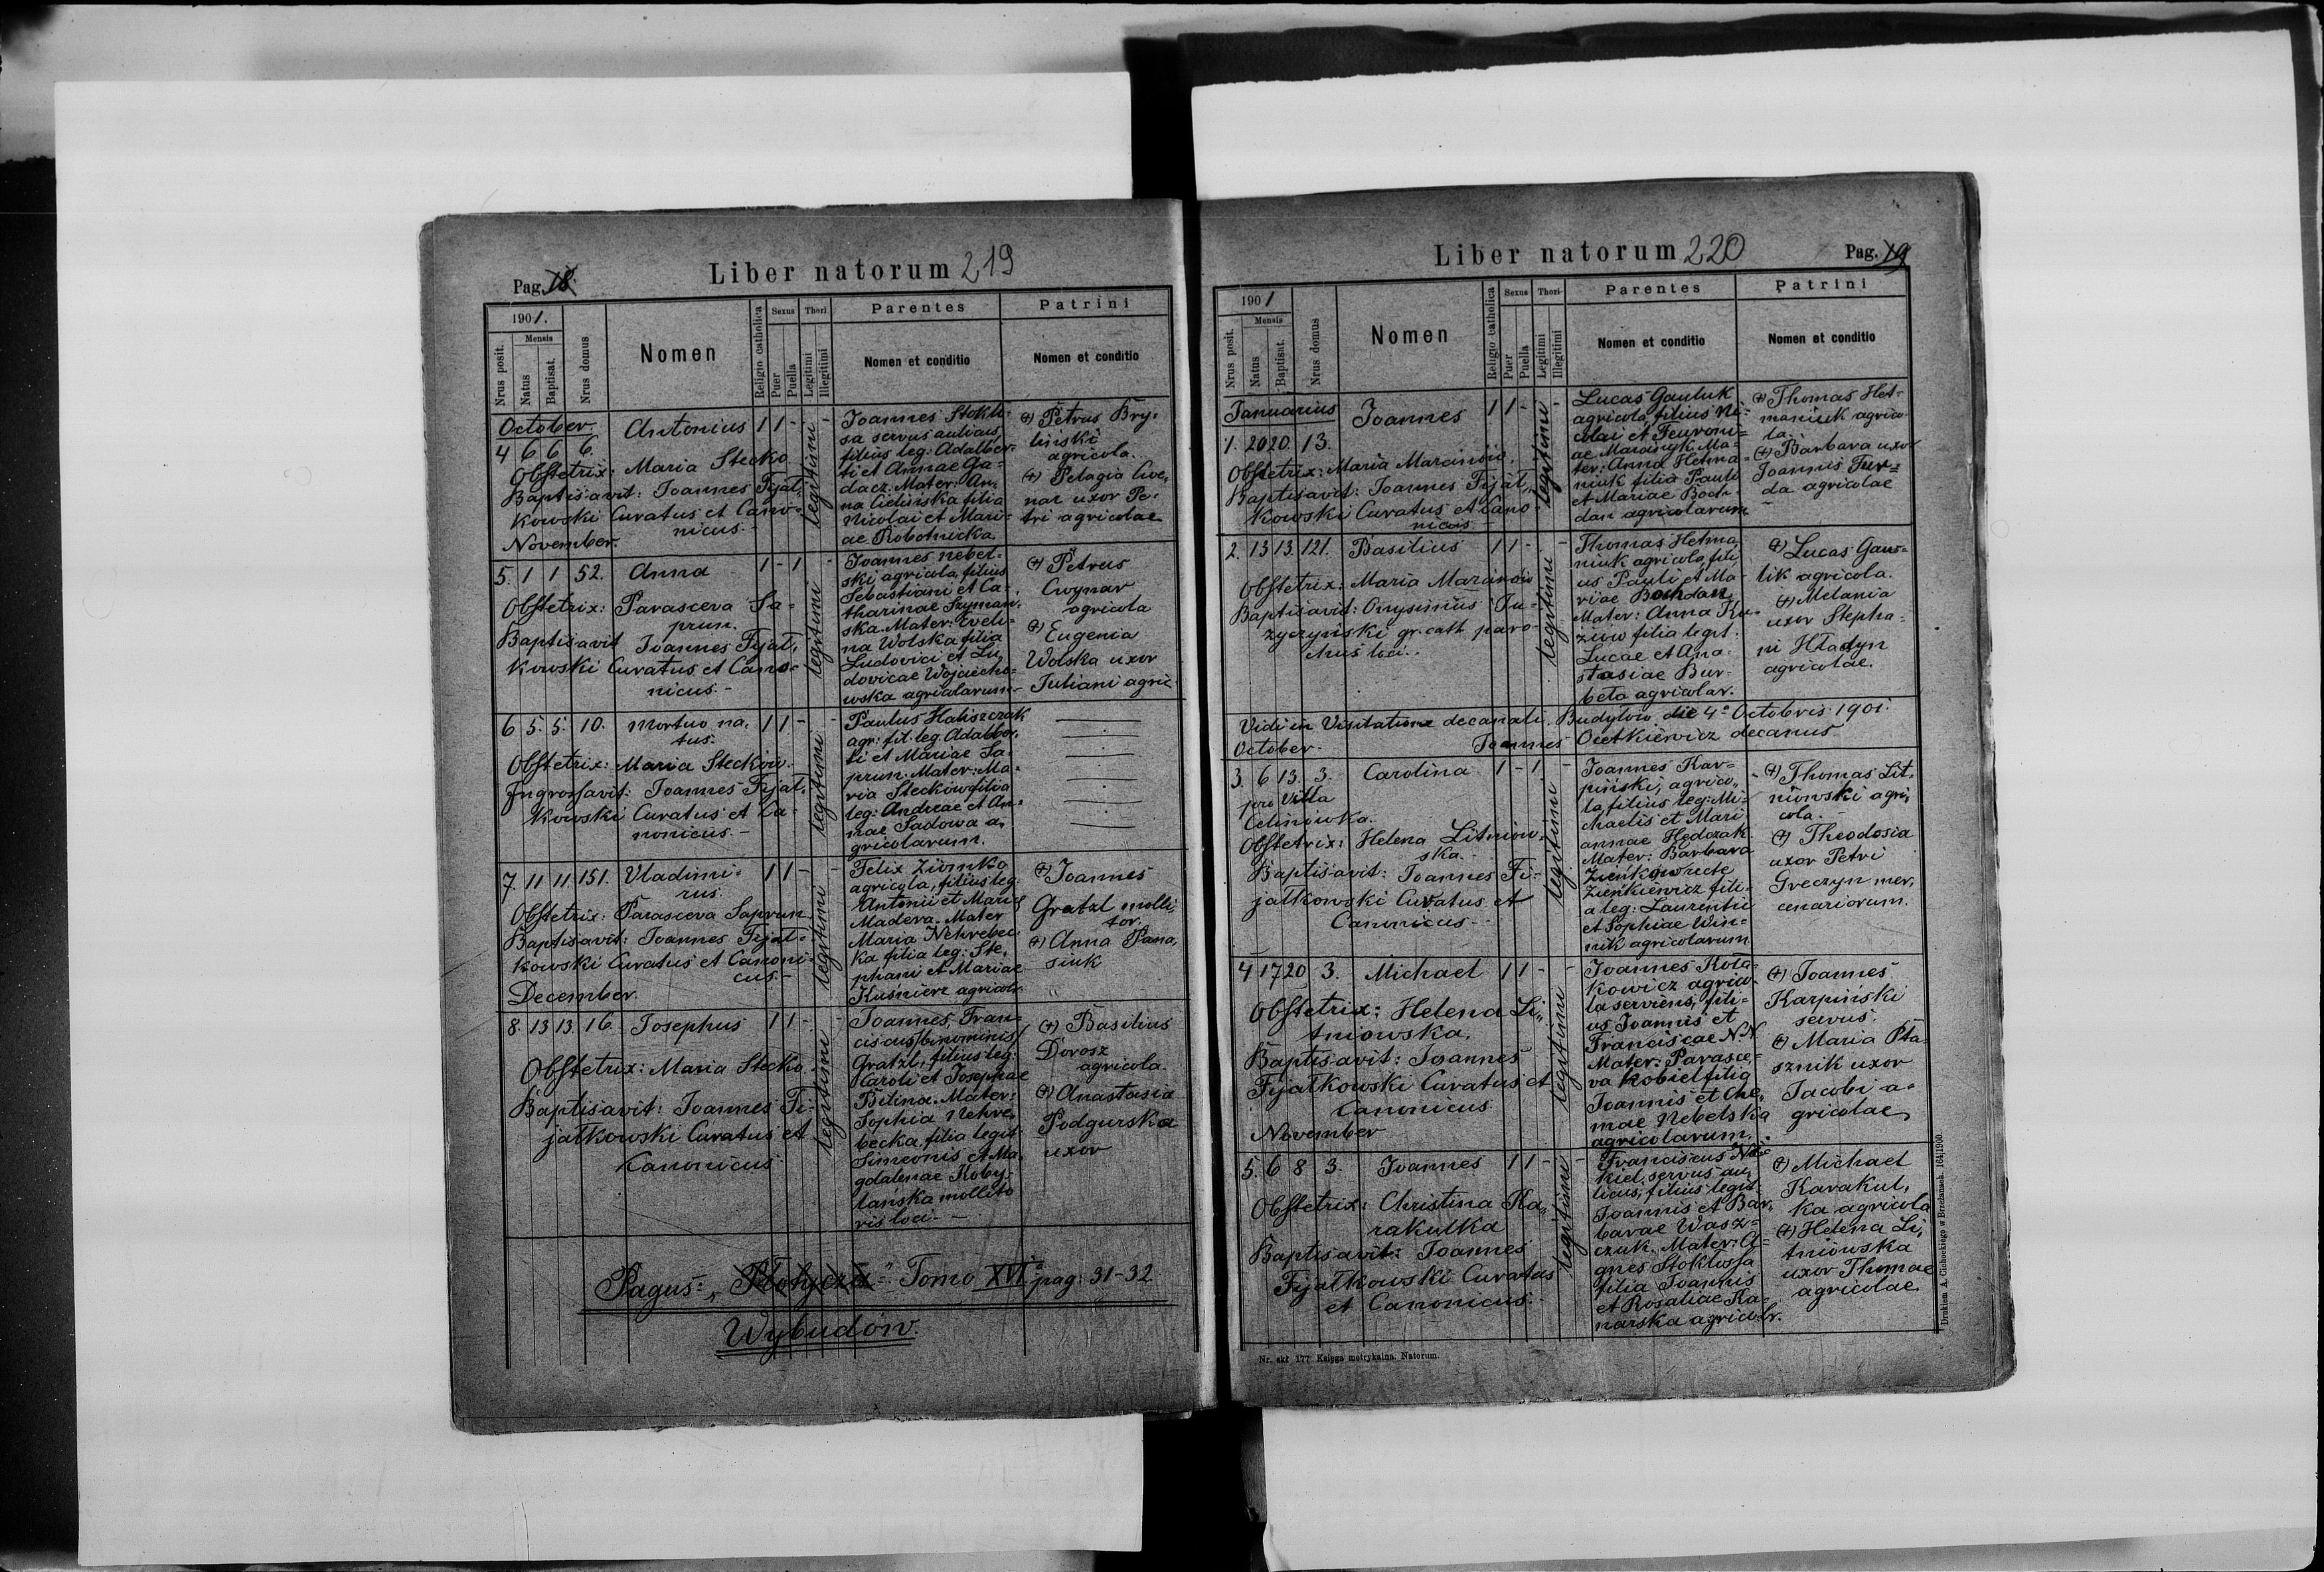 Pag. 18.
Liber natorum 219
1901.
Nrus posit.
Mensis
Natus
Baptisat.
Nrus domus
Nomen
Religio catholica
Sexus
Puer
Puella
Thori
Legitimi
Illegitimi
Parentes
Nomen et conditio
Patrini
Nomen et conditio
October.
4 6 6 6. Antonius 1 1 - -
Obstetrix: Maria Stecko
Baptisavit: Joannes Fijał-
kowski Curatus et Cano-
nicus.-
legitimi
Joannes Stokło-
sa servus aulicus,
filius leg: Adalber-
ti et Annae Ga-
dacz. Mater: An-
na Cielińska filia
Nicolai et Mari-
ae Robotnicka
Petrus Bry-
liński
agricola.
Pelagia Cwe-
nar uxor Pe-
tri agricolae
November.
5. 1 1 52. Anna 1 - 1 -
Obstetrix: Parasceva Sa-
prun.
Baptisavit Joannes Fijał-
kowski Curatus et Cano-
nicus.-
legitimi
Joannes Nebel-
ski agricola, filius
Sebastiani et Ca-
tharinae Szyman-
ska. Mater: Eveli-
na Wolska filia
Ludovici et Lu-
dovicae Wojciecho-
wska agricolarum-
Petrus
Cwynar
agricola
Eugenia
Wolska uxor
Juliani agric.
6 5. 5. 10. Mortuo na- 1 1 - -
tus.
Obstetrix: Maria Steckow.
Ingrossavit: Joannes Fijał-
kowski Curatus et Ca-
nonicus.-
legitimi
Paulus Haliszczak
agr: fil. leg. Adalber-
ti et Mariae Sa-
prun. Mater: Ma-
ria Steckow filia
leg: Andreae et An-
nae Sadowa a-
gricolarum.
7. 11 11 151. Vladimi- 1 1 - -
rus.
Obstetrix: Parasceva Saprun
Baptisavit: Joannes Fijał-
kowski Curatus et Canoni-
cus.-
legitimi
Felix Ziomko
agricola, filius leg:
Antonii et Mariae
Madera. Mater
Maria Nehrebec-
ka filia leg: Ste-
phani et Mariae
Kuśnierz agricolr.
Joannes
Gratzl molli-
tor.
Anna Pana-
siuk
December.
8. 13 13. 16. Josephus 1 1 - -
Obstetrix: Maria Stecko.
Baptisavit: Joannes Fi-
jałkowski Curatus et
Canonicus
legitimi
Joannes, Fran-
ciscus (binominis)
Gratzl, filius leg:
Caroli et Josephae
Bilina. Mater:
Sophia Nehre-
becka, filia legit.
Simeonis et Ma-
gdalenae Koby-
lanska mollito
ris loci.-
Basilius
Dorosz
agricola.
Anastasia
Podgurska
uxor
Pagus: „Płotycza" Tomo XVI° pag: 31-32
Wybudów.
Liber natorum 220
Pag. 19
1901
Nrus posit.
Mensis
Natus
Baptisat.
Nrus domus
Nomen
Religio catholica
Sexus
Puer
Puella
Thori
Legitimi
Illegitimi
Parentes
Nomen et conditio
Patrini
Nomen et conditio
Januarius
1. 20 20. 13. Joannes 1 1 - -
Obstetrix: Maria Marciniów.
Baptisavit: Joannes Fijał-
kowski Curatus et Cano-
nicus.-
legitimi
Lucas Gauluk
agricola, filius Ni-
colai et Feuroni-
ae Marcinyk. Ma-
ter: Anna Hetma-
niuk filia Pauli
et Mariae Boch-
dan agricolarum
Thomas Het-
maniuk agrico-
la.
Barbara uxor
Joannis Fur-
da agricolae
2. 13 13. 121. Basilius 1 1 - -
Obstetrix: Maria Marciniów
Baptisavit: Onysimius Tu-
zyczyński gr. cath. paro-
chus loci.
legitimi
Thomas Hetma-
niuk agricola, fili-
us Pauli et Ma-
riae Bochdan
Mater: Anna Ku-
ziów filia legit:
Lucae et Ana-
stasiae Bur-
beta agricolar.
Lucas Gau-
lik agricola.
Melania
uxor Stepha-
ni Hładyn
agricolae.
Vidi in Visitatione decanali. Budylów die 4ª Octobris 1901.
Joannes Ocetkiewicz decanus.
October.
3. 6 13. 3. Carolina 1 - 1 -
pro Villa
Celinówka.
Obstetrix: Helena Litniow-
ska.
Baptisavit: Joannes Fi-
jałkowski Curatus et
Canonicus-
legitimi
Joannes Kar-
piński, agrico-
la, filius leg: Mi-
chaelis et Mari
annae Hędczak
Mater: Barbara
Zieńków recte
Zieńkiewicz fili-
a leg: Laurentii
et Sophiae Win-
nik agricolarum
Thomas Lit-
niowski agri-
cola.-
Theodosia
uxor Petri
Greczyn mer-
cenariorum.
4 17 20 3. Michael 1 1 - -
Obstetrix: Helena Li-
tniowska.
Baptisavit: Joannes
Fijałkowski Curatus et
Canonicus
legitimi
Joannes Koła-
kowicz agrico-
la serviens, fili-
us Joannis et
Franciscae N.N
Mater: Parasce-
va Kobiel filia
Joannis et Che-
mae Nebelska
agricolarum.
Joannes
Karpiński
servus.
Maria Pta-
sznik uxor
Jacobi a-
gricolae
November
5. 6 8 3. Joannes 1 1 - -
Obstetrix: Christina Ka-
rakulka
Baptisavit: Joannes
Fijałkowski Curatus
et Canonicus.
legitimi
Franciscus
kiel, servus au-
licus, filius legit.
Joannis et Bar-
barae Wasz-
czuk. Mater: A-
gnes Stokłossa
filia Joannis
et Rosaliae Ka-
narska agricolr.
Michael
Karakul-
ka agricola
Helena Li-
tniowska
uxor Thomae
agricolae.
Nr. skł 177 Księga metrykalna. Natorum.
Drukiem A. Cichockiego w Brzeżanach. 164|1900.